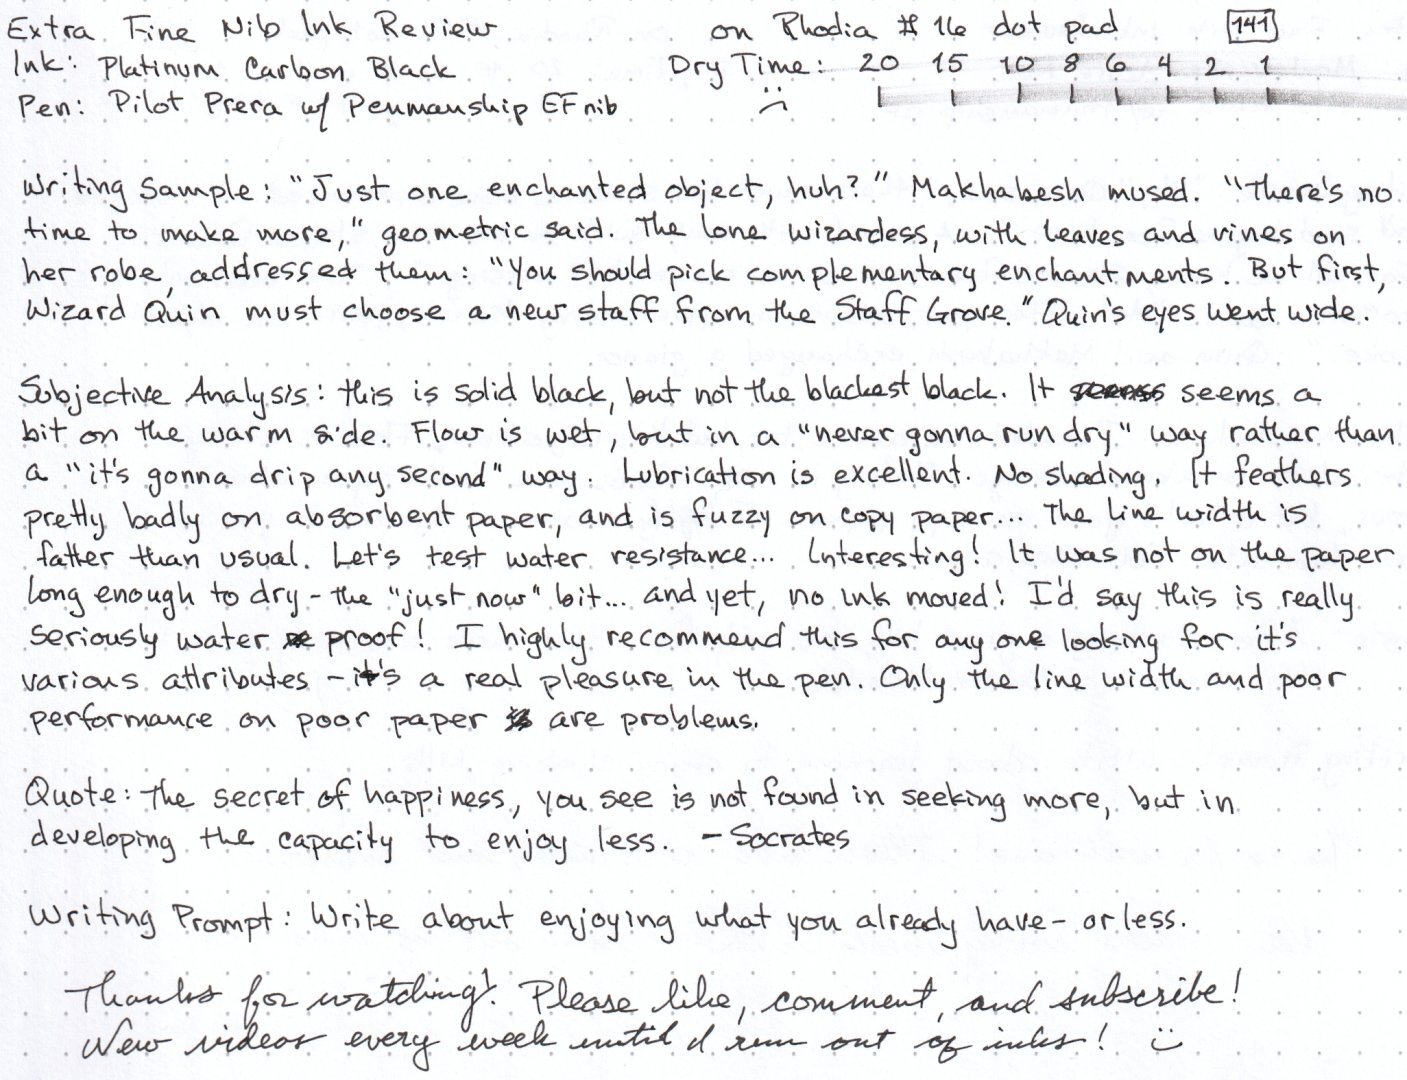 Extra Fine Nib Ink Review on Rhodia # 16 dot pad 141
Ink: Platinum Carbon Black Dry Time: 20 15 10 8 6 4 2 1
Pen: Pilot Prera w/ Penmanship EF nib :(
Writing Sample: "Just one enchanted object, huh?" Makhabesh mused. "There's no
time to make more," geometric said. The lone wizardess, with leaves and vines on
her robe, addressed them: "You should pick complementary enchantments. But first,
Wizard Quin must choose a new staff from the Staff Grove." Quin's eyes went wide.
Subjective Analysis: This is solid black, but not the blackest black. It seems a
bit on the warm side. Flow is wet, but in a "never gonna run dry" way rather than
a "it's gonna drip any second" way. Lubrication is excellent. No shading. It feathers
pretty badly on absorbent paper, and is fuzzy on copy paper... The line width is
fatter than usual. Let's test water resistance... Interesting! It was not on the paper
long enough to dry - the "just now" bit... and yet, no ink moved! I'd say this is really
seriously water proof! I highly recommend this for any one looking for it's
various attributes - it's a real pleasure in the pen. Only the line width and poor
performance on poor paper are problems.
Quote: The secret of happiness, you see is not found in seeking more, but in
developing the capacity to enjoy less. - Socrates
Writing Prompt: Write about enjoying what you already have - or less.
Thanks for watching! Please like, comment, and subscribe!
New videos every week until I run out of inks! :)